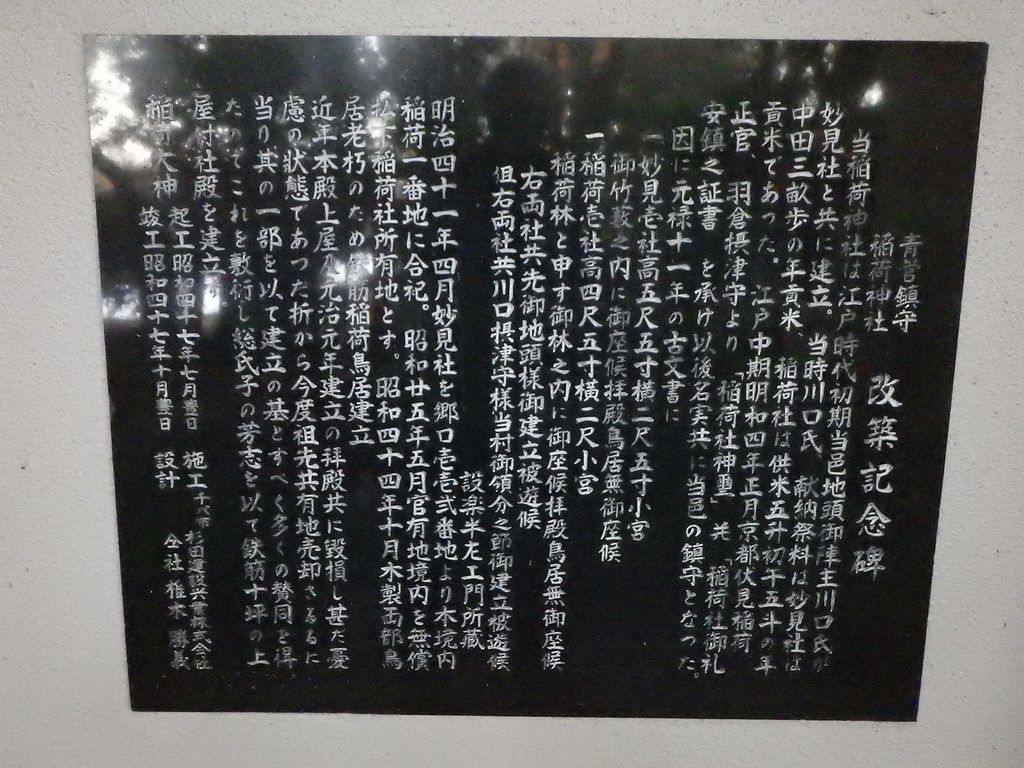 青菅鎮守
稲荷神社 改築記念碑
当稲荷神社は江戸時代初期当邑地頭御陣主川口氏が
妙見社と共に建立。 当時川口氏 献納祭料は妙見社は
中田三畝歩の年貢米 稲荷社は供米五升初午五斗の年
貢米であった。 江戸中期明和四年正月京都伏見稲荷
正官、羽倉摂津守より 「稲荷社神璽」 「稲荷社御礼
安鎮之証書 を承け以後名実共に当邑の鎮守となつた。
因に元禄十一年の古文書に
一 妙見壱社高五尺五寸横二尺五寸小宮
御竹薮之内に御座候拝殿鳥居無御座候
一 稲荷壱社高四尺五寸横二尺小宮
稲荷林と申す御林之内に御座候拝殿鳥居無御座候
右両社共先御地頭様御建立被遊候
但右両社共川口摂津守様当村御領分之節御建立被遊候
設楽半左エ門所蔵
明治四十一年四月妙見社を郷口壱壱弐番地より本境内
稲荷一番地に合祀。昭和廿五年五月官有地境内を無償
払下稲荷社所有地とす。昭和四十四年十月木製両部鳥
居老朽のため鉄筋稲荷鳥居建立
近年本殿上屋及元治元年建立の拝殿共に毀損し甚だ憂
慮の状態であつた折から今度祖先共有地売却さるるに
当り其の一部を以て建立の基とすべく多くの賛同を得
たのでこれを敷衍し氏子の芳志を以て鉄筋十坪の上
屋付社殿を建立す。
起工昭和四十七年七月吉日 施工 杉田建設興業株式会社
稲荷大神 竣工昭和四十七年十月吉日 設計 仝社 椎木勝義